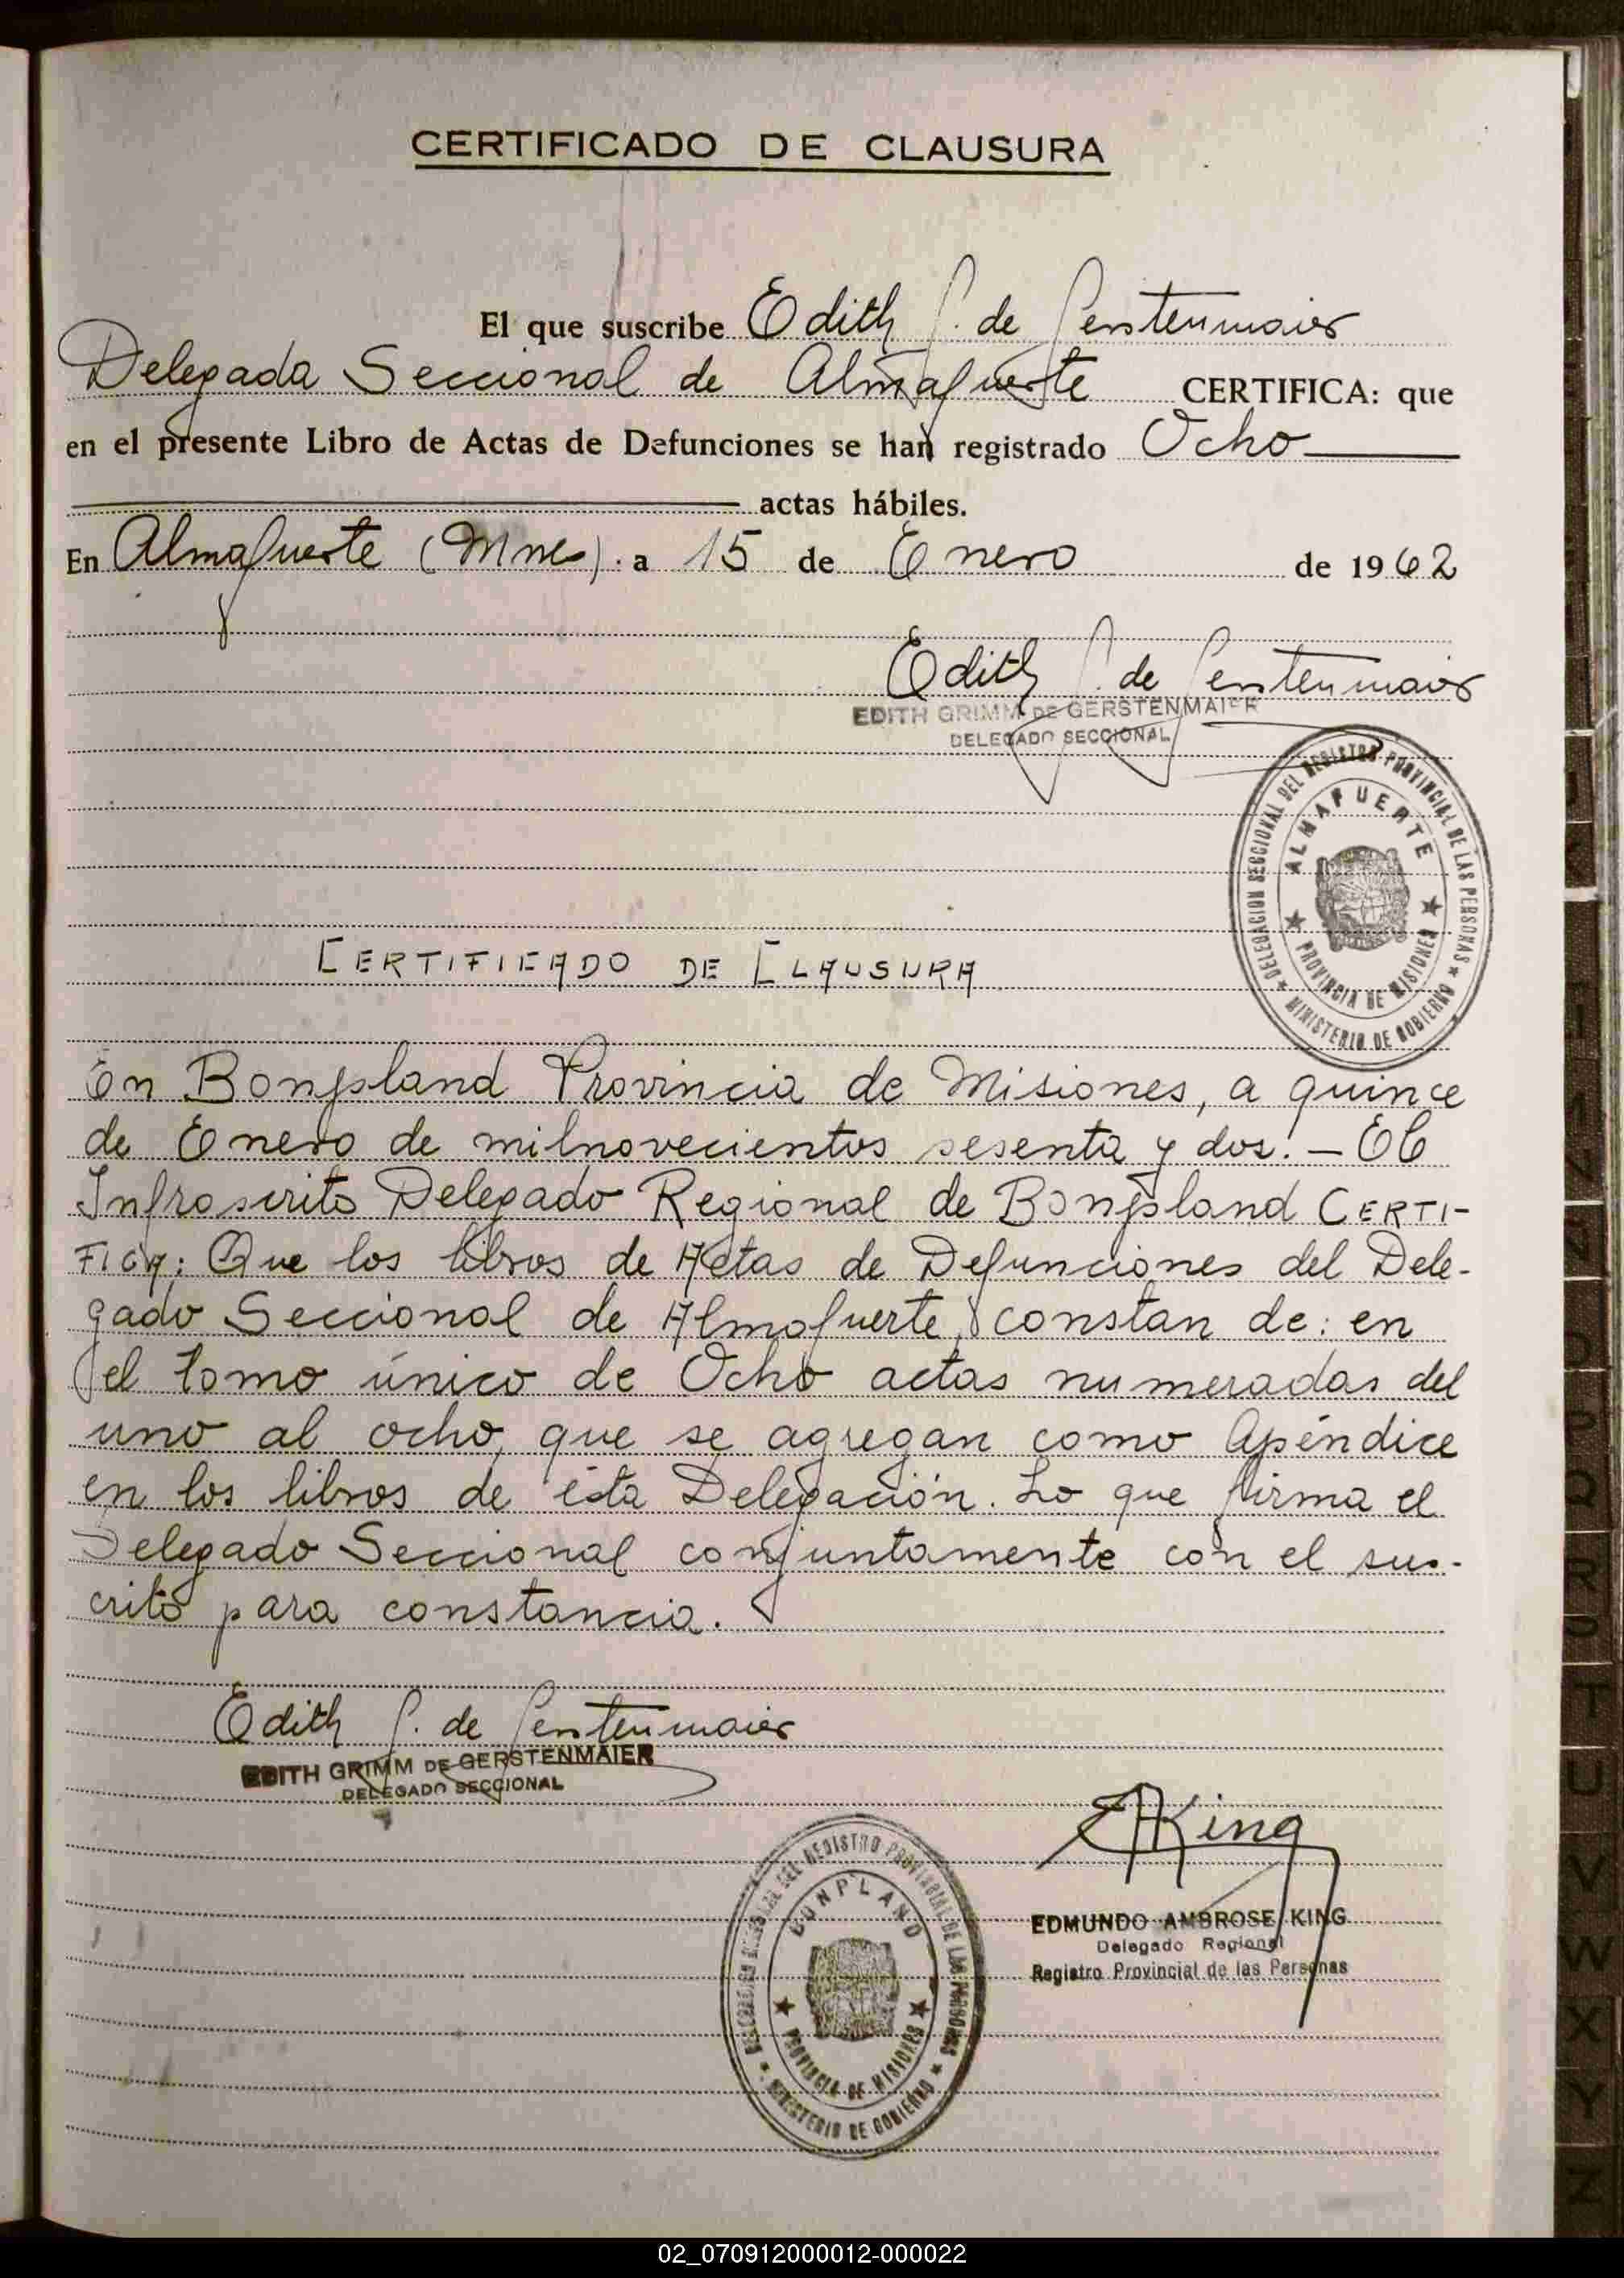 CERTIFICADO DE CLAUSURA
El que suscribe Edith G. de Gerstenmaier
Delegada Seccional de Almafuerte CERTIFICA: que
en el presente Libro de Actas de Defunciones se han registrado Ocho
actas hábiles.
En Almafuerte (Mnes). a 15 de Enero de 1962
Edith G. de Gerstenmaier
EDITH GRIMM DE GERSTENMAIER
DELEGADO SECCIONAL
DELEGACION SECCIONAL DEL REGISTRO PROVINCIAL DE LAS PERSONAS
ALMAFUERTE
PROVINCIA DE MISIONES
MINISTERIO DE GOBIERNO
CERTIFICADO DE CLAUSURA
En Bonpland Provincia de Misiones, a quince
de Enero de milnovecientos sesenta y dos.- El
Infrascrito Delegado Regional de Bonpland CERTI-
FICA: Que los libros de Actas de Defunciones del Dele-
gado Seccional de Almafuerte, constan de: en
el tomo único de Ocho actas numeradas del
uno al ocho, que se agregan como Apéndice
en los libros de ésta Delegación. Lo que firma el
Delegado Seccional conjuntamente con el sus-
crito para constancia.
Edith G. de Gerstenmaier
EDITH GRIMM DE GERSTENMAIER
DELEGADO SECCIONAL
EAKing
EDMUNDO AMBROSE KING
Delegado Regional
Registro Provincial de las Personas
DEL REGISTRO PROVINCIAL DE LAS PERSONAS
BONPLAND
PROVINCIA DE MISIONES
MINISTERIO DE GOBIERNO
J
K
L
M
N
Ñ
O
P
Q
R
S
T
U
V
W
X
Y
Z
02_070912000012-000022